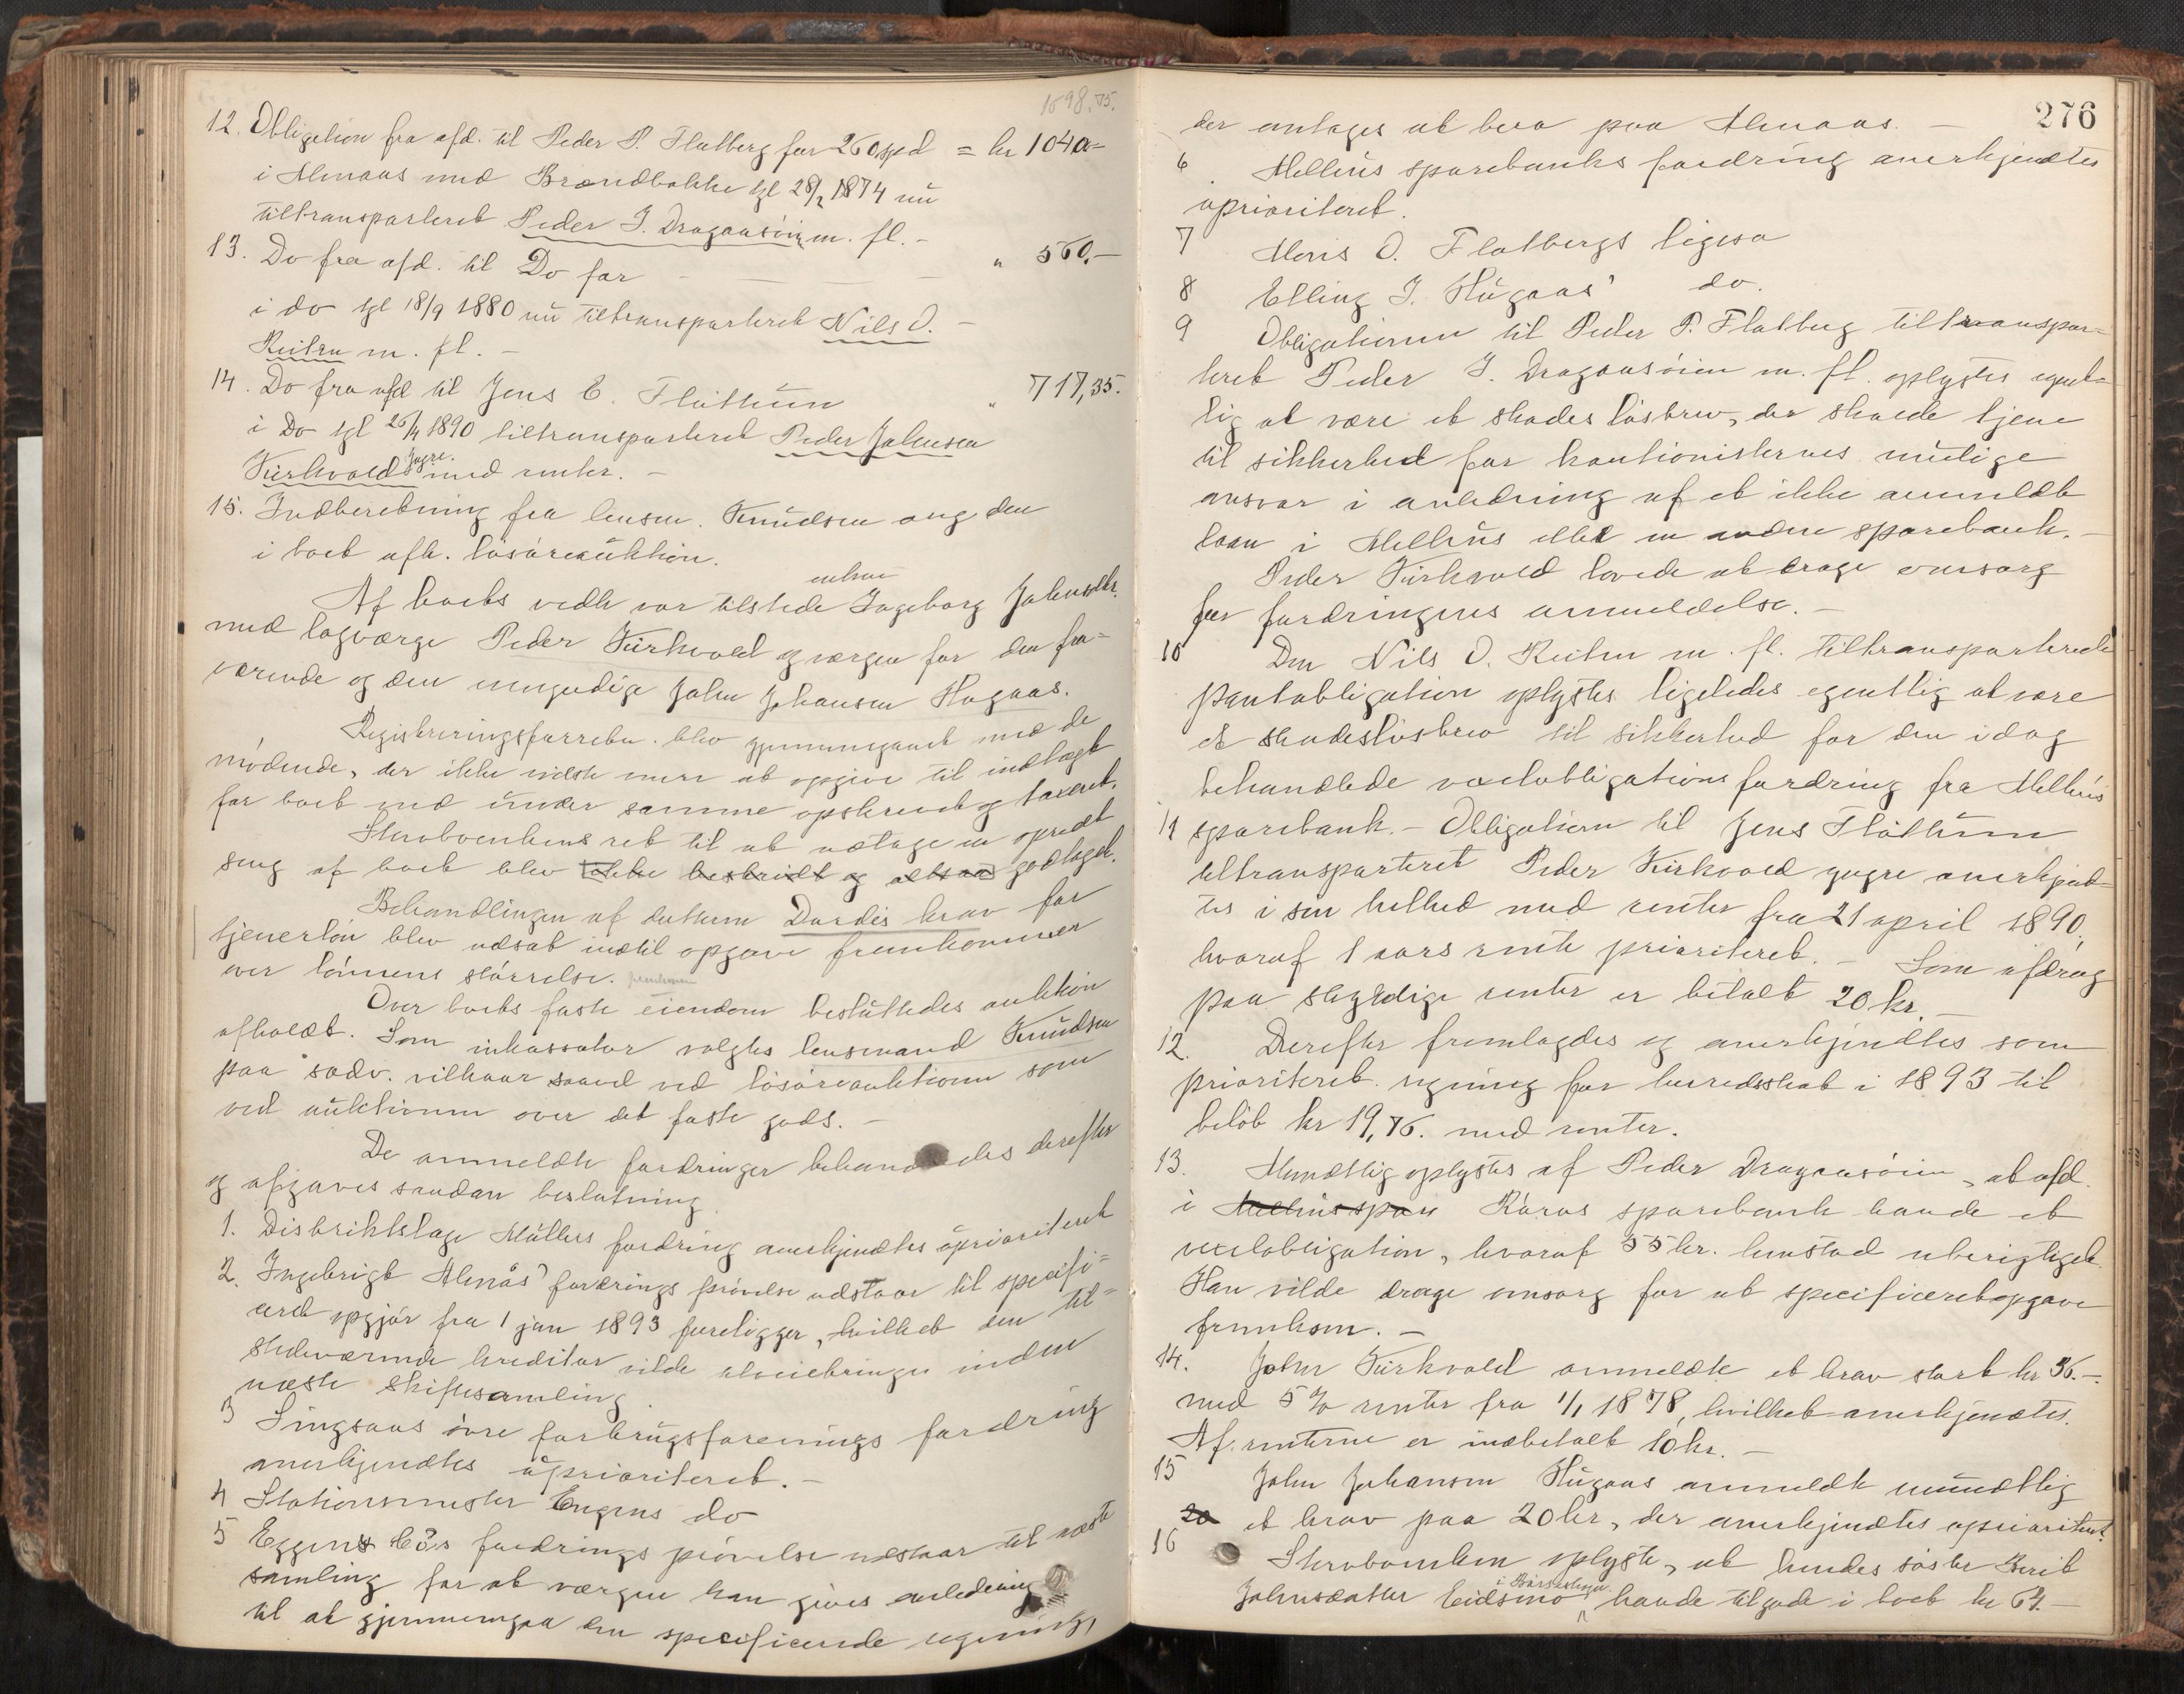 1598.75.
12. Obligation fra afd. til Peder P. Flatberg for 260 spd = kr 1040=
i Almaas med Brændbakke tgl 28/2 1874 nu
tiltransporteret Peder J. Dragaasöien m. fl. -
13. Do fra afd. til Do for - - - " 560.-
i do tgl 18/9 1880 nu tiltransporteret Nils O. -
Reitan m. fl. -
14. Do fra afd til Jens E. Flåttum " 717,35.
i Do tgl 26/4 1890 tiltransporteret Peder Johnsen
Kirkvold yngre. med renter. -
15. Indberetning fra lensm. Knudsen ang. den
i boet afh. lösöreauktion.
Af boets vedk var tilstede enken Ingeborg Johnsdtr.
med lagværge Peder Kirkvold og værgen for den fra-
værende og den umyndige John Johansen Hugaas.
Registreringsforretn. blev gjennemgaaet med de
mödende, der ikke vidste mere at opgive til indtægt
for boet end under samme opskrevet og taxeret.
Skraboenkens ret til at udtage en opredt
seng af boet blev ikke bestridt og altsaa godtaget.
Behandlingen af datteren Dordis krav for
tjenerlön blev udsat indtil opgave fremkommer
over lönnens störrelse.
Over boets faste eiendom besluttedes auktion
afholdt. Som inkassator valgtes lensmand Knudsen
paa sædv. vilkaar saavel ved lösöreauktionen som
ved auktionen over det faste gods. -
De anmeldte fordringer behandledes derefter
og afgaves saadan beslutning
1. Distriktslæge Müllers fordring anerkjendtes uprioriteret
2. Ingebrigt Almås' fordrings prövelse udstaar til specifi-
ceret opgjör fra 1 jan 1893 foreligger, hvilket den til-
stedeværende kreditor vilde tilveiebringe inden
næste skiftesamling.
3 Singsaas övre forbrugsforenings fordring
anerkjendtes uprioriteret. -
4 Stationsmester Engens do
5 Eggens Co's fordrings prövelse udstaar til næste
samling for at værgen kan gives anledning
til at gjennemgaa den specificerede regning,
276
der antages at bero paa Almaas. -
6. Melhus sparebanks fordring anerkjendtes
uprioriteret.
7 Mons O. Flatbergs ligesa
8 Elling J. Hugaas' do.
9 Obligationen til Peder P. Flatberg tiltranspor-
teret Peder J. Dragaasöien m. fl. oplystes egent-
lig at være et skadeslösbrev, der skulde tjene
til sikkerhed for kautionisternes mulige
ansvar i anledning af et ikke anmeldt
laan i Melhus eller en anden sparebank. -
Peder Kirkvold lovede at drage omsorg
for fordringens anmeldelse. -
10 Den Nils O. Reitan m. fl. tiltransporterede
pantobligation oplystes ligeledes egentlig at være
et skadeslösbrev til sikkerhed for den idag
behandlede vexelobligations fordring fra Melhus
11 sparebank. - Obligationen til Jens Flåttum
tiltransporteret Peder Kirkvold yngre anerkjend-
tes i sin helhed med renter fra 21 april 1890,
hvoraf 1 aars rente prioriteret. - Som afdrag
paa skyldige renter er betalt 20 kr. -
12. Derefter fremlagdes og anerkjendtes som
prioriteret regning for herredsskat i 1893 til
belöb kr 19,76. med renter.
13. Mundtlig oplystes af Peder Dragaasöien, at afd.
i Melhus spare Röros sparebank havde et
vexelobligation, hvoraf 55 kr. henstod uberigtiget.
Han vilde drage omsorg for at specificeret opgave
fremkom. -
14. John Kirkvold anmeldte et krav stort kr 36.-
med 5 % renter fra 1/1 1878, hvilket anerkjendtes.
Af renterne er indbetalt 10 kr. -
15 John Johansen Hugaas anmeldte mundtlig
20 et krav paa 20 kr, der anerkjendtes uprioriteret.
16 Skraboenken oplyste, at hendes söster Berit
Johnsdatter Eidsmo i Börseskogn havde tilgode i boet kr 64. -